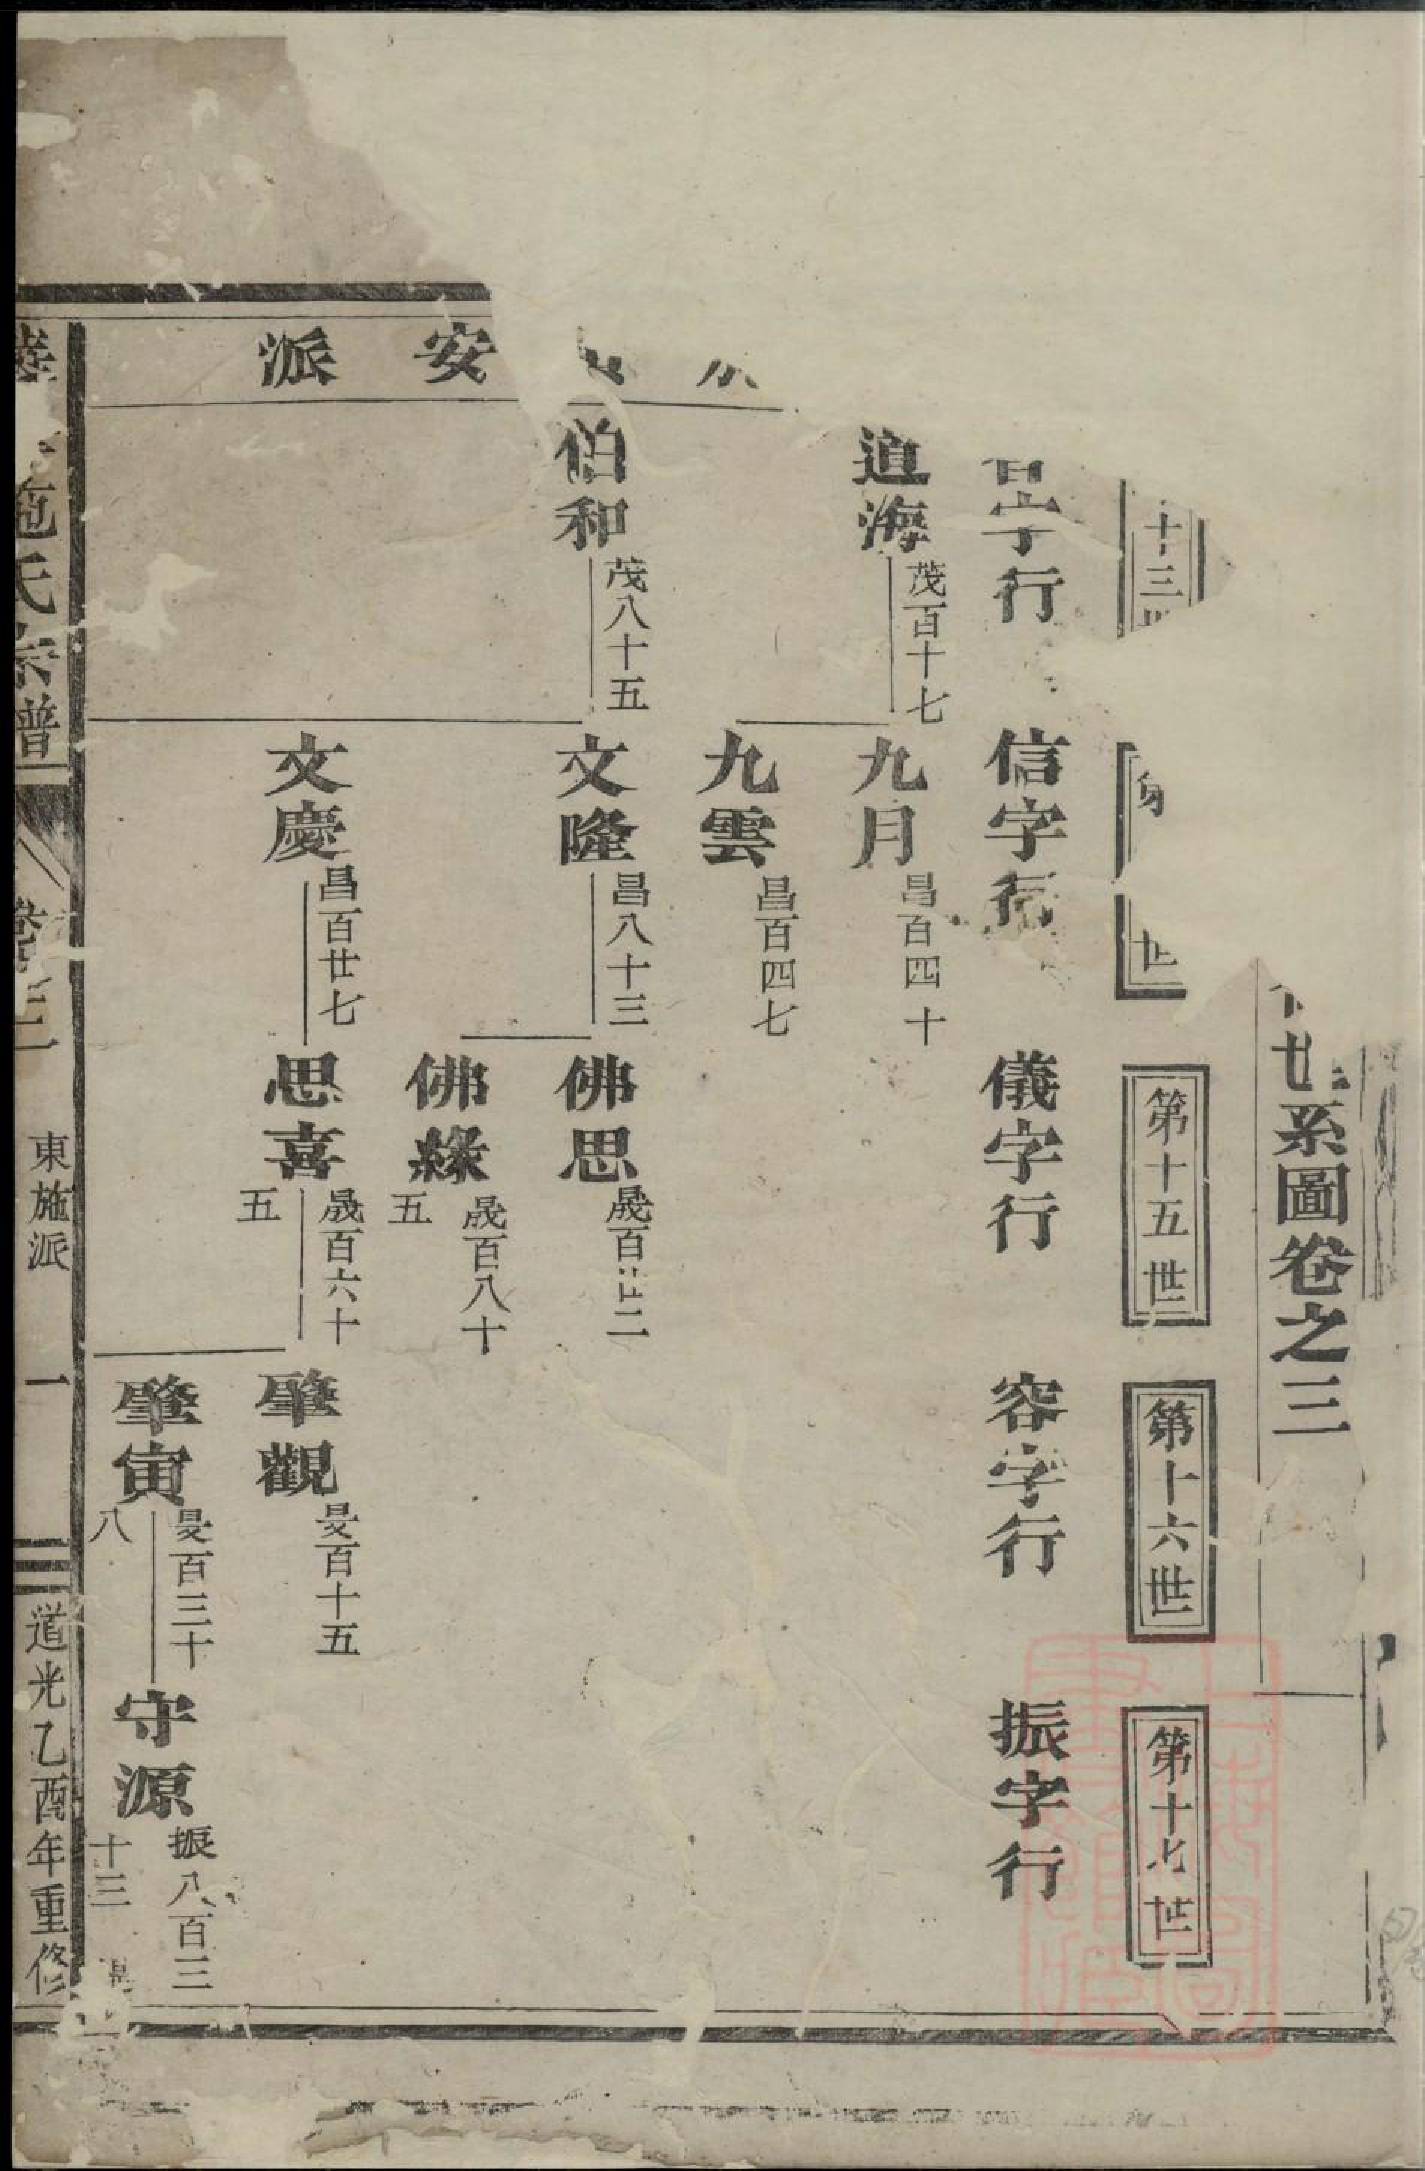 世系圖卷之三
十三
第十五世
第十六世
第十七世
字行
信字行
儀字行
容字行
振字行
派安
道海
茂百十七
九月
昌百四十
九雲
昌百四七
伯和
茂八十五
文隆
昌八十三
佛思
晟百廿二
佛緣
晟百八十
五
文慶
昌百廿七
思喜
晟百六十
五
肇觀
旻百十五
肇寅
旻百三十
八
守源
振八百三
十三
施氏宗譜
卷三
東施派
一
道光乙酉年重修